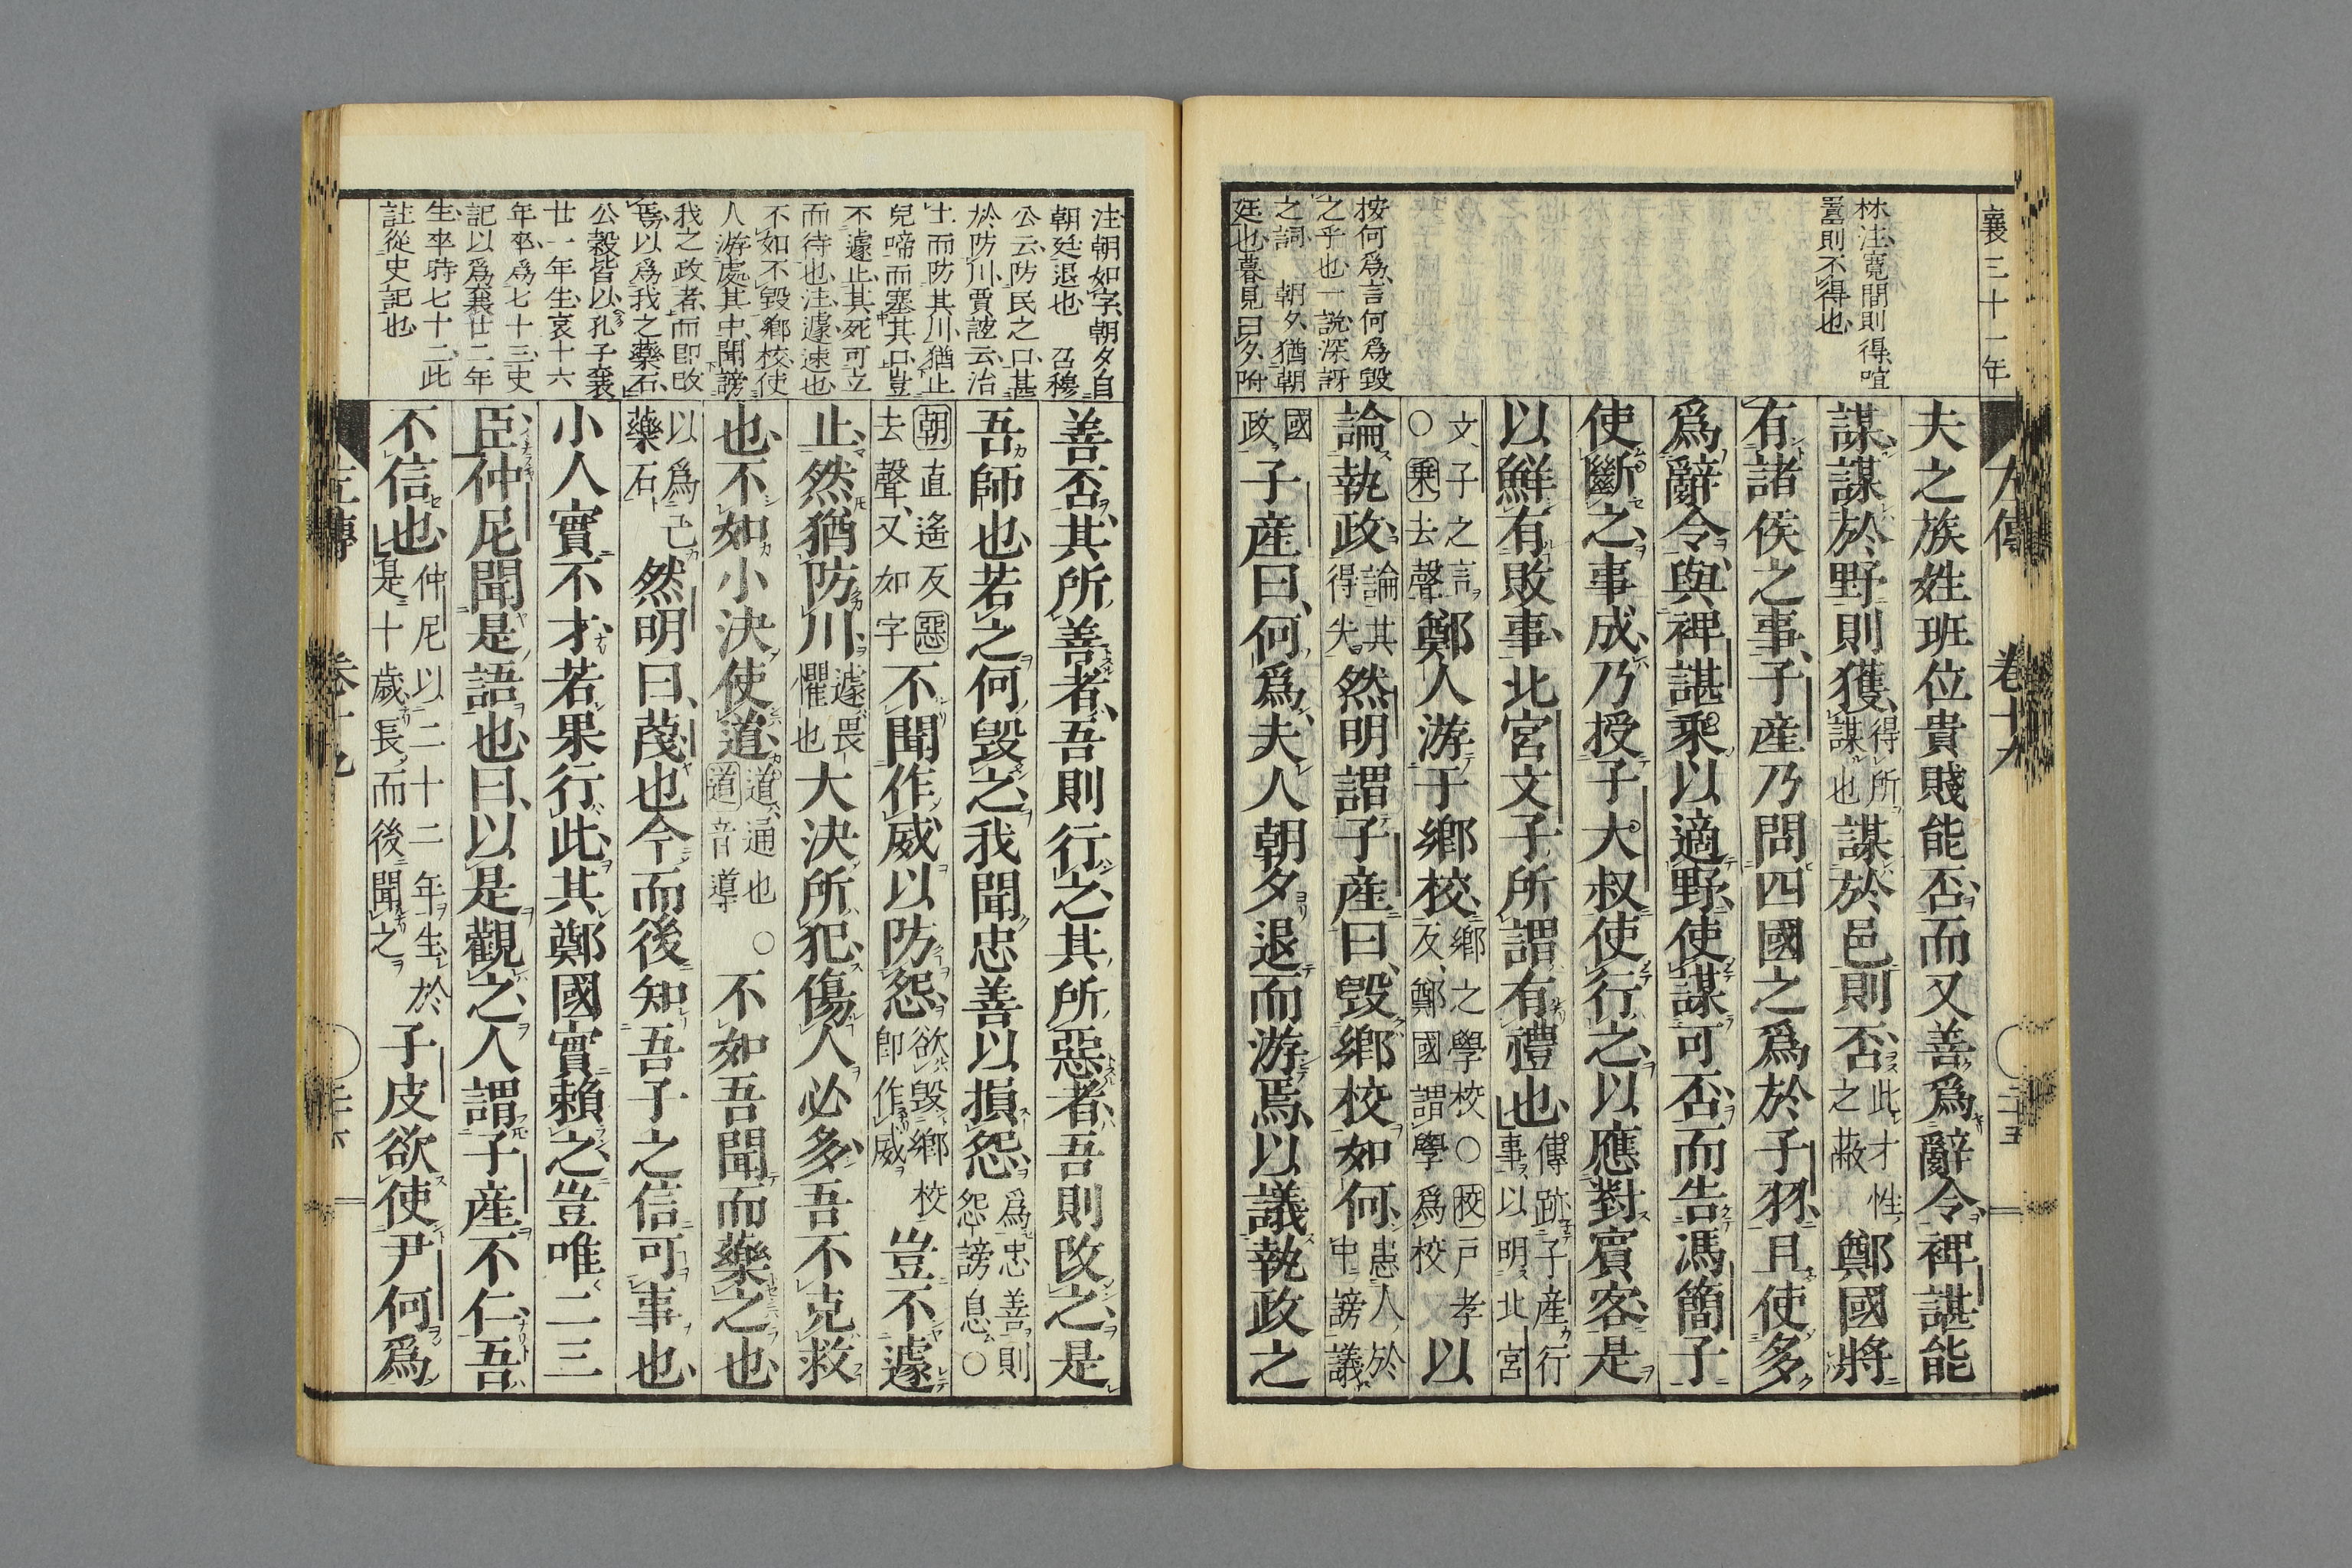 襄三十一年
林注寛間則得喧
囂則不得也
按何爲言何爲毀
之乎也一說深訝
之詞 朝夕猶朝
廷也暮見曰夕附
夫之族姓班位貴賤能否而又善爲辭令裨諶能
謀謀於野則獲得所謀也謀於邑則否此才性之蔽鄭國將
有諸侯之事子產乃問四國之爲於子羽且使多
爲辭令與裨諶乘以適野使謀可否而告馮簡子
使斷之事成乃授子大叔使行之以應對賓客是
以鮮有敗事北宮文子所謂有禮也傳跡子產行事以明北宮
文子之言○乘去聲鄭人游于鄉校鄉之學校○校戸孝反鄭國謂學爲校以
論執政論其得失然明謂子產曰毀鄉校如何患人於中謗議
國政子產曰何爲夫人朝夕退而游焉以議執政之
左傳 卷十九 二十五
注朝如字朝夕自
朝廷退也 召穆
公云防民之口甚
於防川賈誼云治
土而防其川猶止
兒啼而塞其口豈
不遽止其死可立
而待也注遽速也
不如不毀鄉校使
人游處其中聞謗
我之政者而即改
焉以爲我之藥石
公穀皆以孔子襄
廿一年生哀十六
年卒爲七十三史
記以爲襄廿二年
生卒時七十二此
註從史記也
善否其所善者吾則行之其所惡者吾則改之是
吾師也若之何毀之我聞忠善以損怨爲忠善則怨謗息○
朝直遙反惡去聲又如字不聞作威以防怨欲毀鄉校即作威豈不遽
止然猶防川遽畏懼也大決所犯傷人必多吾不克救
也不如小決使道道通也道音導○不如吾聞而藥之也
以爲己藥石然明曰蔑也今而後知吾子之信可事也
小人實不才若果行此其鄭國實賴之豈唯二三
臣仲尼聞是語也曰以是觀之人謂子產不仁吾
不信也仲尼以二十二年生於是十歲長而後聞之子皮欲使尹何爲
左傳 卷十九 二十六